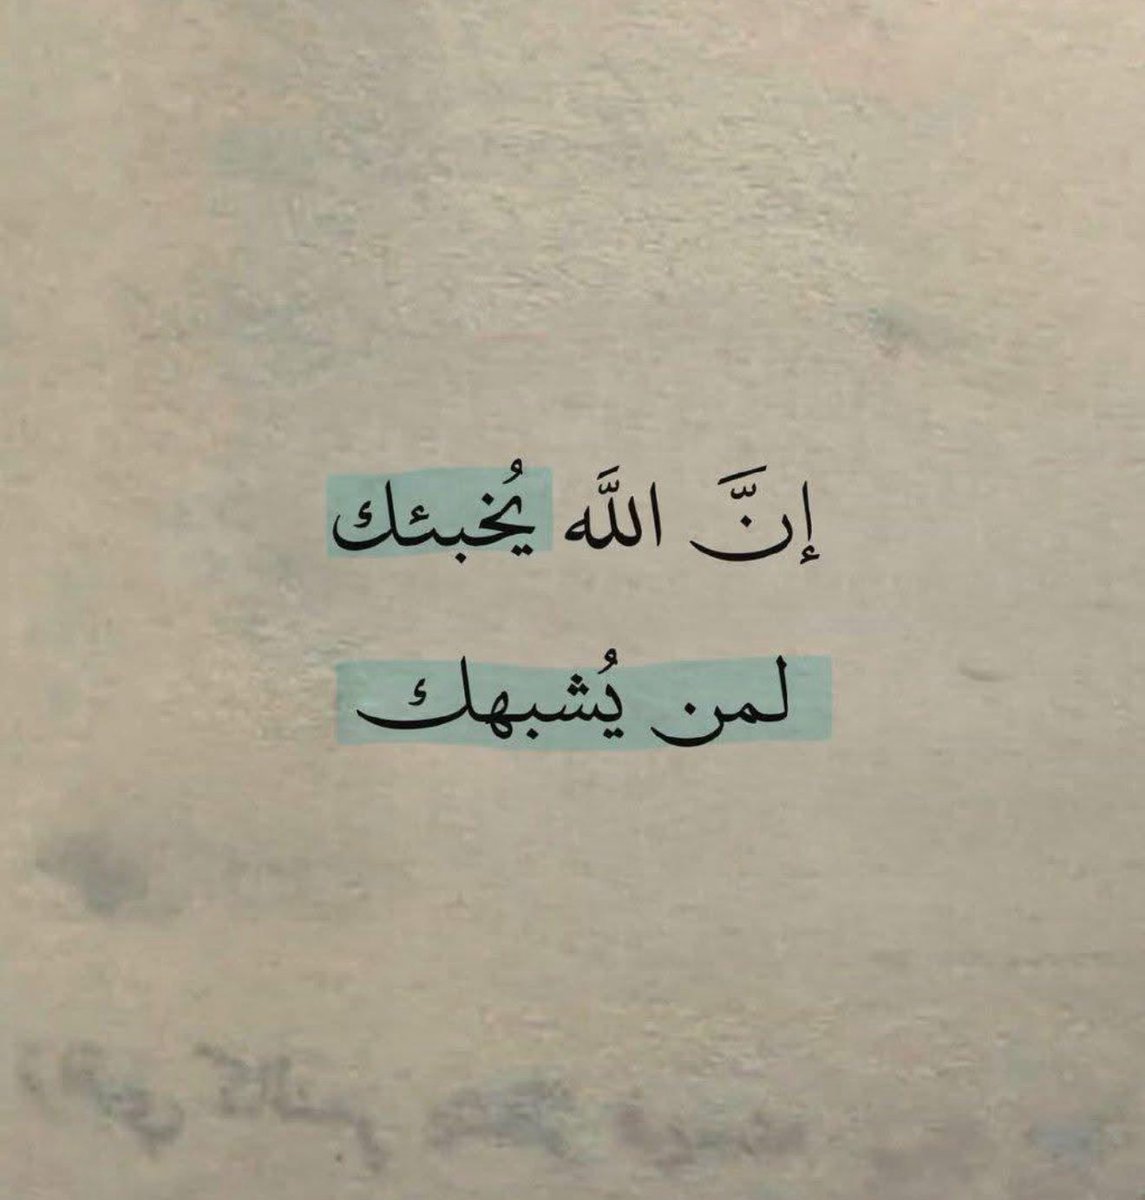 إنَّ اللَّه يُخبئك
لمن يُشبهك